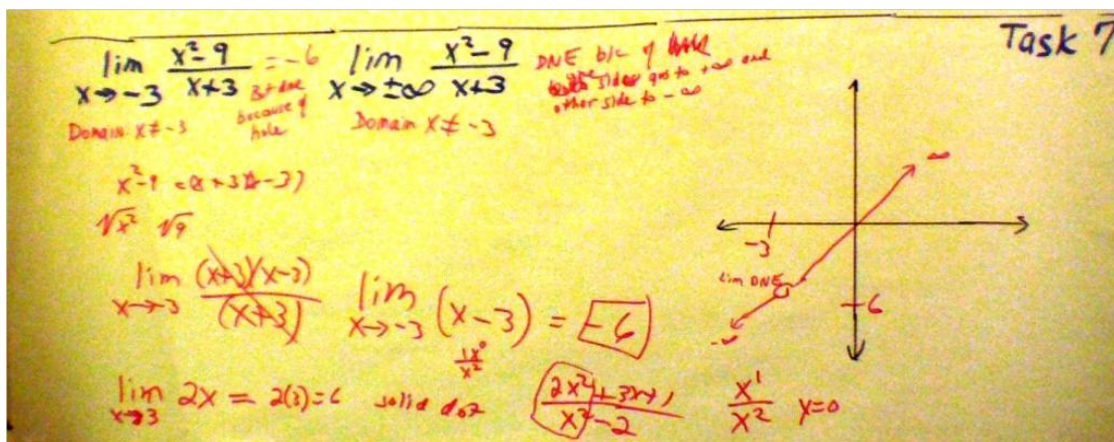 Task 7
lim x→-3 x²-9 / x+3 = -6
because of hole
Domain x≠-3
lim x→±∞ x²-9 / x+3
DNE b/c of
side goes to +∞ and
other side to -∞
Domain x≠-3
√x² √9
lim x→-3 (x+3)(x-3) / (x+3)
lim x→-3 (x-3) = -6
lim x→3 2x = 2(3)=6 solid dot
1x⁰ / x²
2x²+3x+1 / x²-2
x¹ / x² y=0
∞
-3
lim DNE
-∞
6